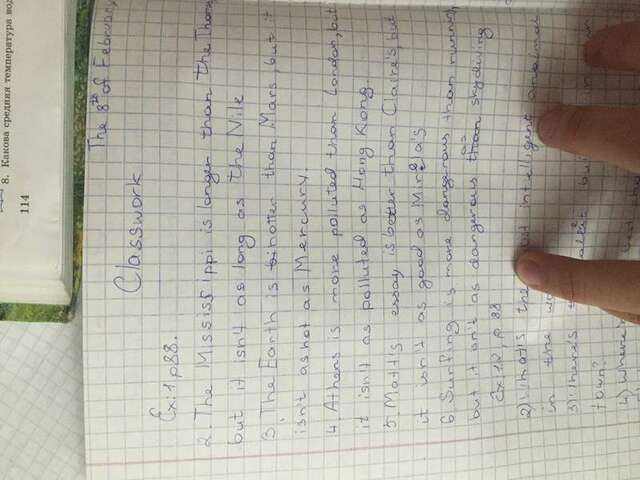 8. Какова средняя температура вод
114
The 8th of February,
Classwork
Ex:1 p88.
2. The Mississippi is longer than the Thames,
but it isn't as long as the Nile
3. The Earth is hotter than Mars, but it
isn't as hot as Mercury.
4. Athens is more polluted than London, but
it isn't as polluted as Hong Kong.
5. Matt's essay is better than Claire's but
it isn't as good as Mina's
6. Surfing is more dangerous than running,
but it isn't as dangerous as skydiving
Ex:12, p 88
2) What's the most intelligent animal
in the
3) Where's the tallest in
town?
4) Where's